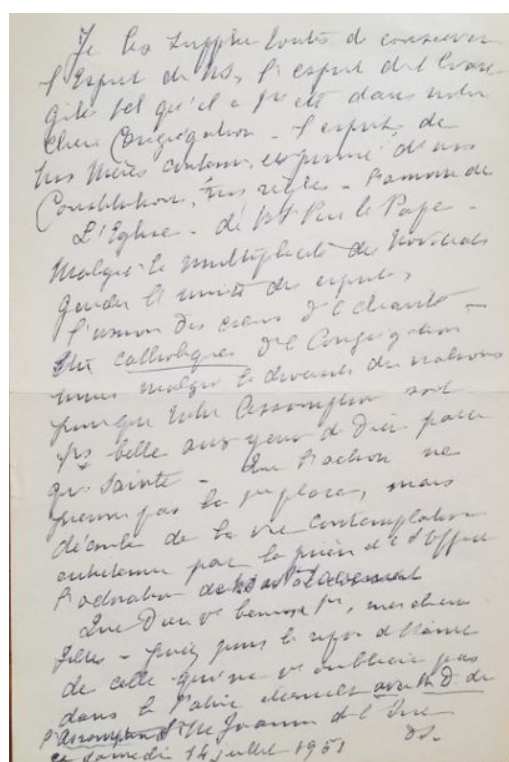 Je les supplie toutes de conserver
l'Esprit de NS, l'esprit de l'Evan-
gile tel qu'il a été dans notre
chère Congrégation - l'esprit de
nos Mères contenu, exprimé ds nos
Constitutions, nos règles - l'amour de
L'Eglise - de Père le Pape -
Malgré la multiplicité des Noviciats
garder l'unité des esprits,
l'union des cœurs de charité -
catholiques Congrégation
malgré la diversité des nations
pour que notre Assomption soit
belle aux yeux de Dieu parce
que Sainte - Que l'action ne
prenne pas la 1re place, mais
découle de la vie contemplative
entretenue par la prière de l'Office
l'adoration
Que Dieu vs bénisse ttes, mes chères
filles - priez pour le repos de l'âme
de celle qui ne vs oubliera pas
dans la Patrie avec N.D. de
l'Assomption
Samedi 14 juillet 1951